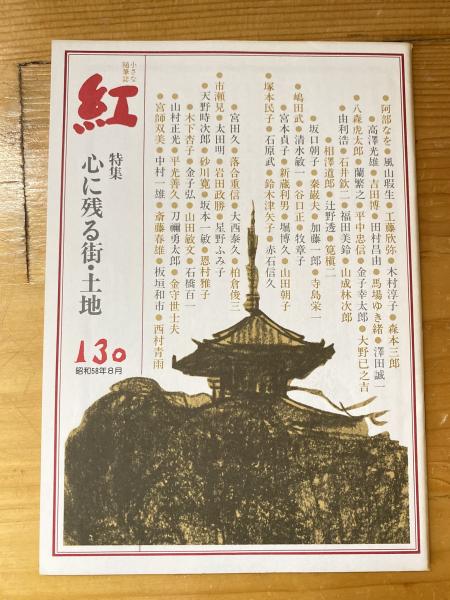 小さな
随筆誌
紅
特集
心に残る街・土地
130
昭和58年8月
●阿部なを●風山瑕生●工藤欣弥●木村淳子●森本三郎
●高澤光雄●吉田博●田村昌由●馬場ゆき緒●澤田誠一
●八森虎太郎●蘭繁之●平中忠信●金子幸太郎●大野巳之吉
●由利浩●石井欽二●福田美鈴●山成林次郎
●相澤道郎●辻野透●筧槇二
●坂口朝子●秦巌夫●加藤一郎●寺島栄一
●嶋田武●清水敏一●谷口正●牧章子
●宮本貞子●新蔵利男●堀博久●山田朝子
●塚本民子●石原武●鈴木津矢子●赤石信久
●宮田久●落合重信●大西泰久●柏倉俊三
●市瀬見●太田明●岩田政勝●星野ふみ子
●天野時次郎●砂川寛●坂本一敏●恩村雅子
●木下杏子●金子弘●山田敏文●石橋百一
●山村正光●平光善久●刀禰勇太郎●金守世士夫
●宮師双美●中村一雄●斎藤春雄●板垣和市●西村青雨